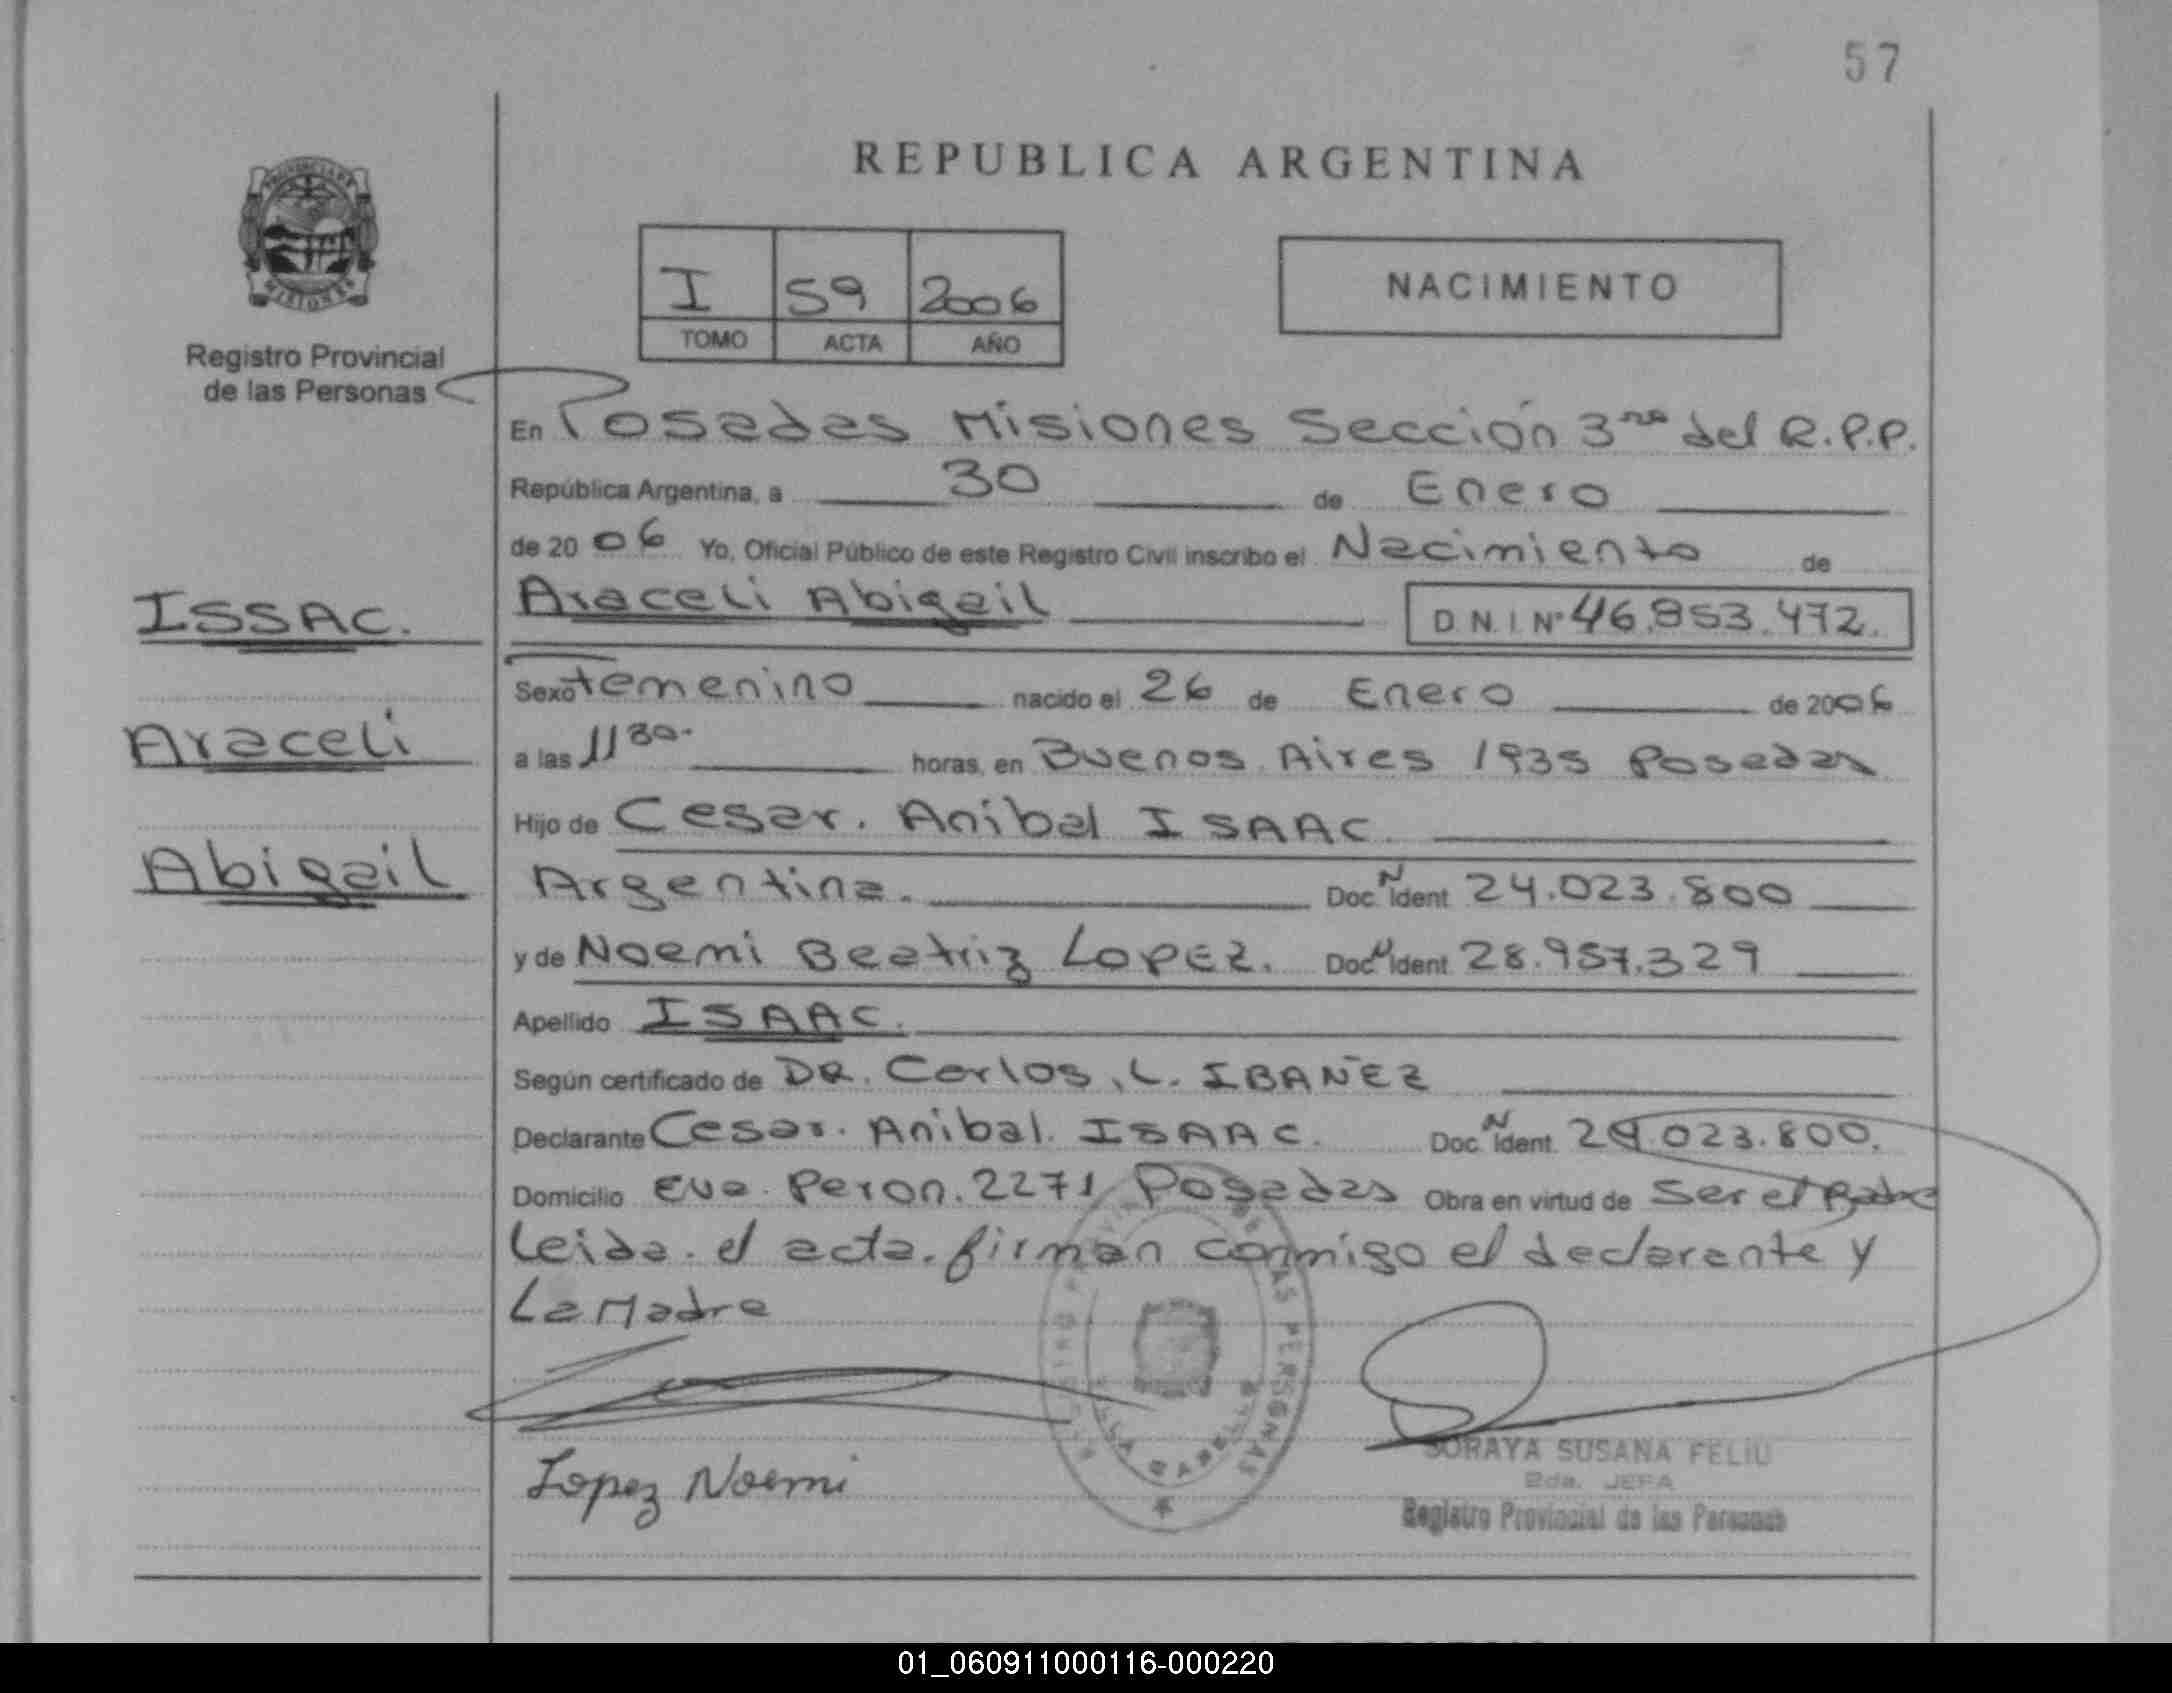 57
REPUBLICA ARGENTINA
PROVINCIA DE
MISIONES
Registro Provincial
de las Personas
I 59 2006
TOMO ACTA AÑO
NACIMIENTO
En Posadas Misiones Sección 3ra del R.P.P.
República Argentina, a 30 de Enero
de 2006 Yo, Oficial Público de este Registro Civil inscribo el Nacimiento de
ISSAC.
Araceli Abigail D.N.I. Nº 46.853.472.
Sexo Femenino nacido el 26 de Enero de 2006
Araceli
a las 11 30- horas, en Buenos Aires 1935 Posadas
Hijo de Cesar. Anibal ISAAC.
Abigail
Argentina. Doc. N Ident 24.023.800
y de Noemi Beatriz LOPEZ. Doc N Ident 28.957.329
Apellido ISAAC.
Según certificado de DR. Carlos, L. IBAÑEZ
Declarante Cesar. Anibal. ISAAC. Doc. N Ident. 24.023.800.
Domicilio Eva. Peron. 2271 Posadas Obra en virtud de Ser el Padre
Leida. el acta. firman conmigo el declarante y
La Madre
REGISTRO PROVINCIAL DE LAS PERSONAS
Lopez Noemi
SORAYA SUSANA FELIU
2da. JEFA
Registro Provincial de las Personas
01_060911000116-000220